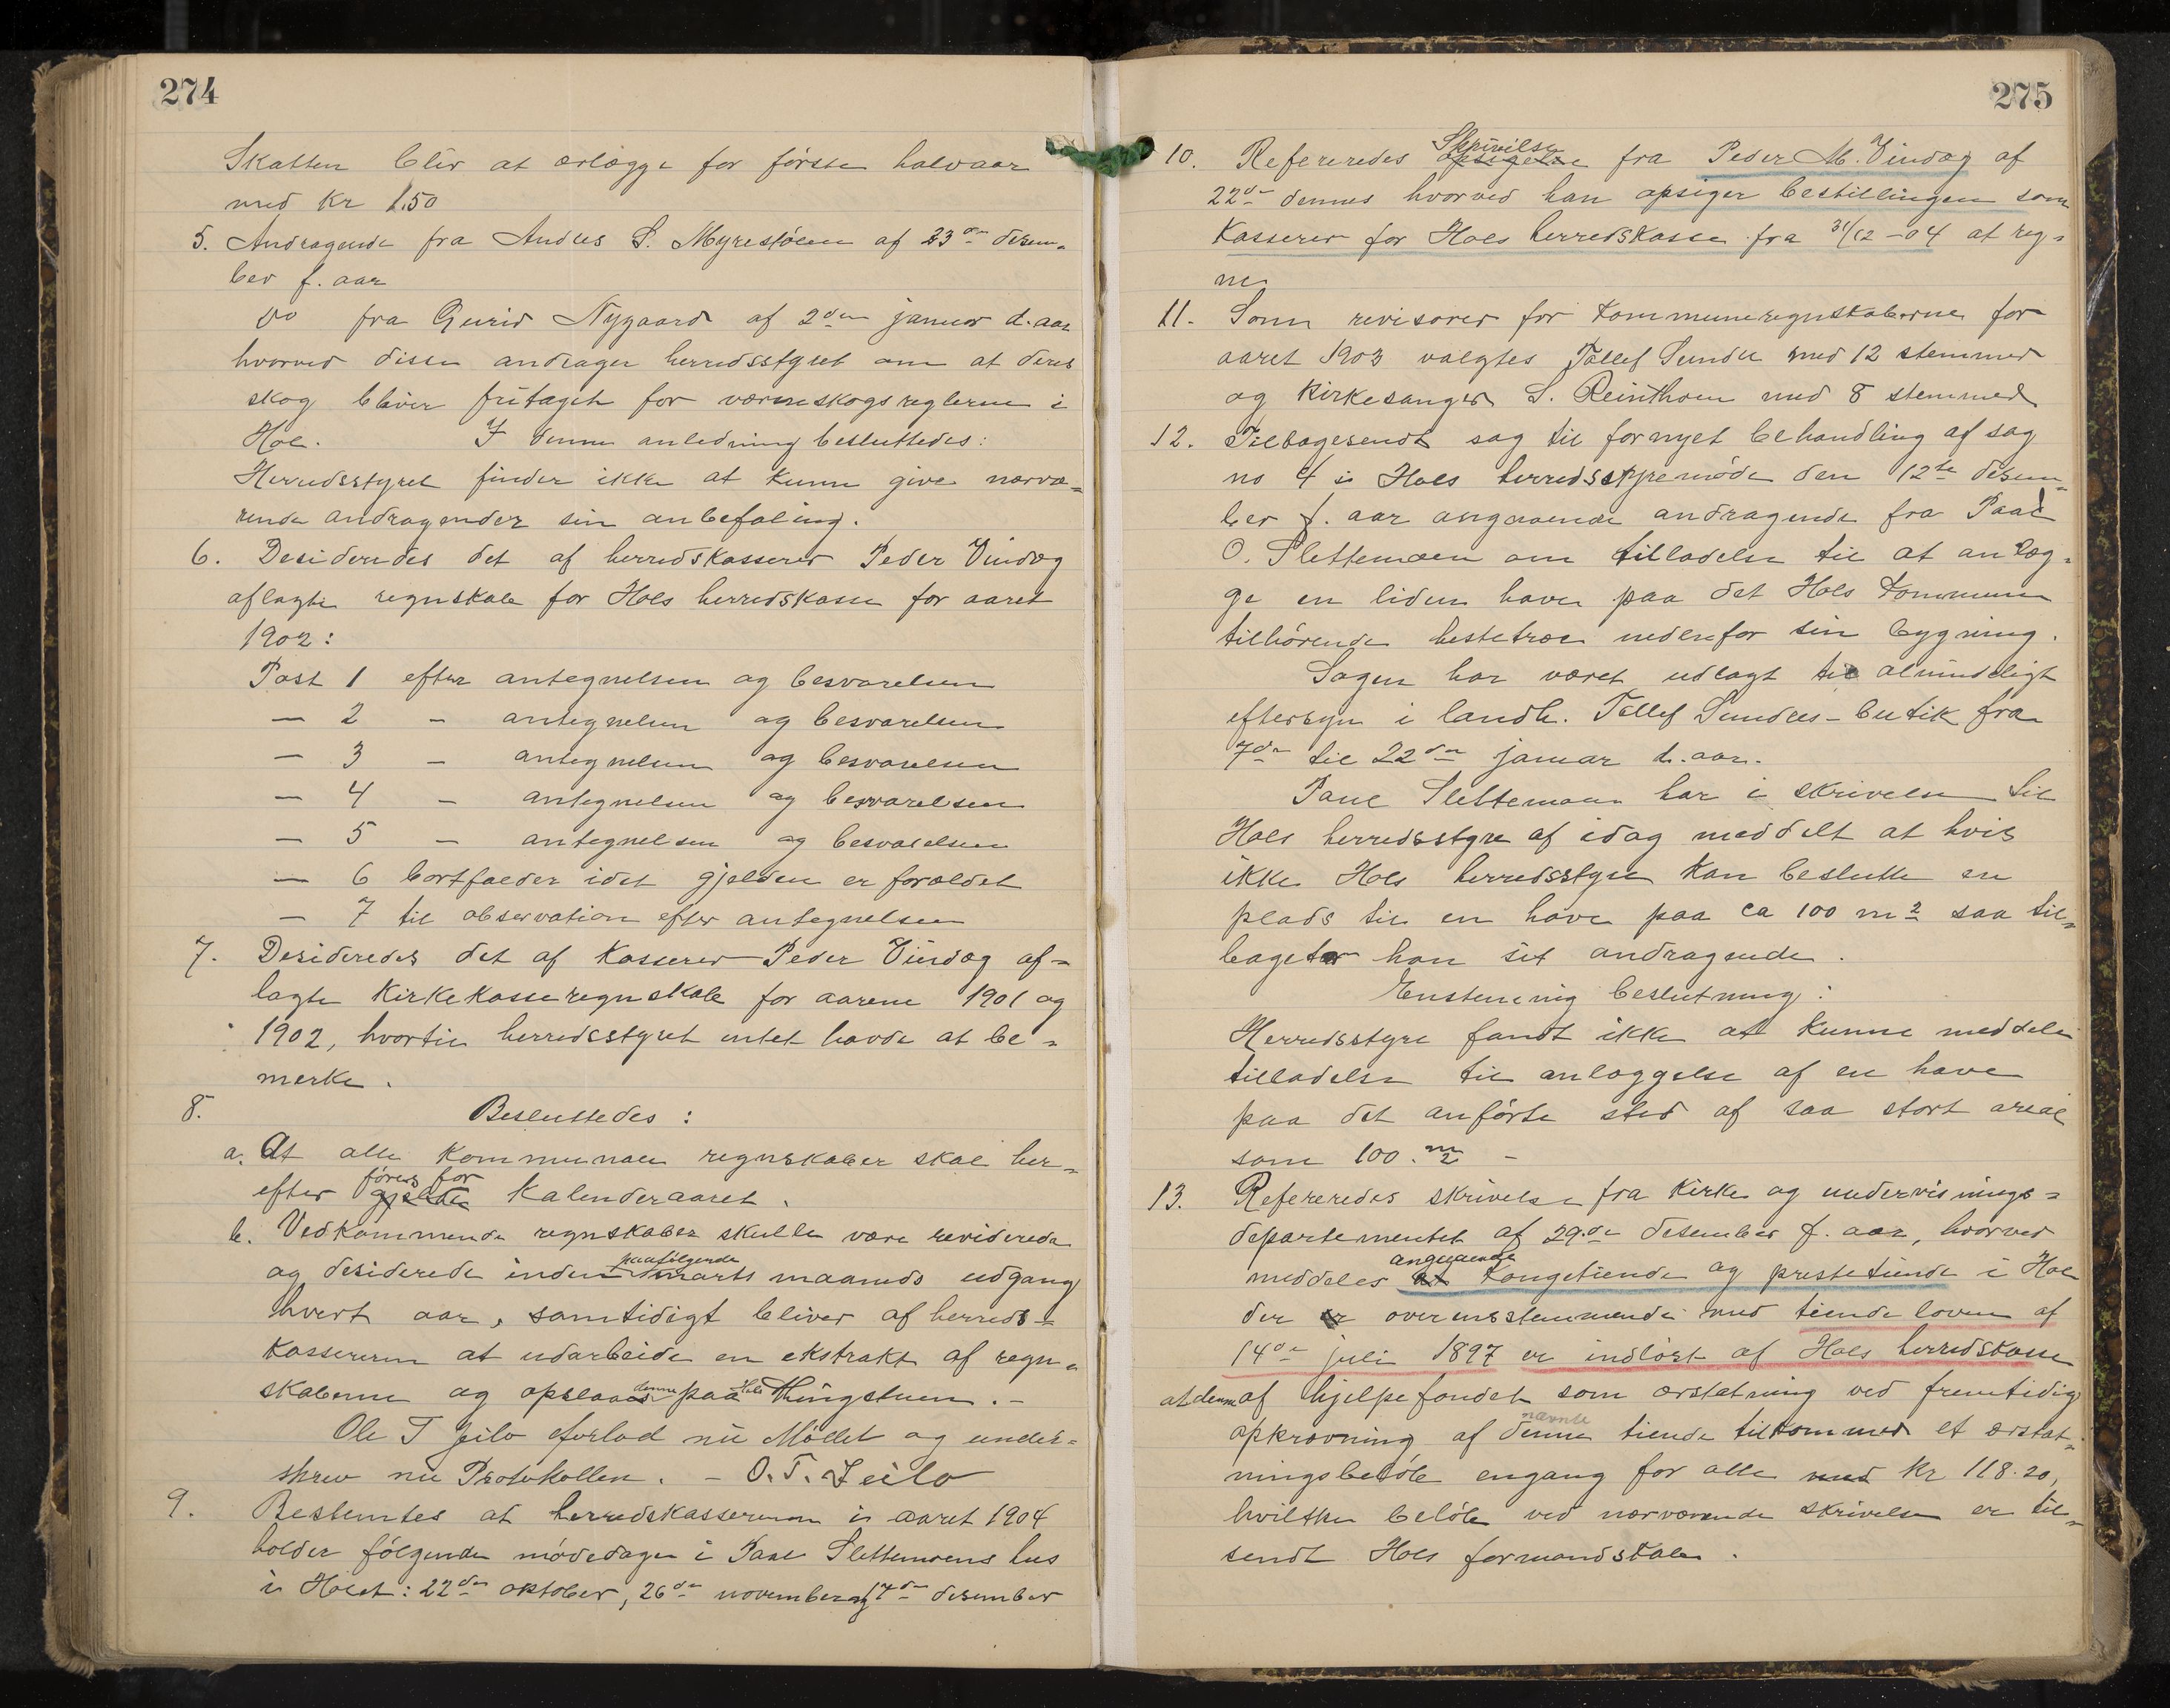 274
Skatten bliv at erlægge for første halvaar
med Kr 1.50
5. Andragende fra Andres S. Myrestølen af 23de desem-
ber f. aar
Do fra Gurid Nygaard af 2den januar d. aar
hvorved disse andrager herredsstyret om at deres
skog bliver fritaget for værneskogsreglerne i
Hol. I denne anledning besluttedes:
Herredsstyret finder ikke at kunne give nærvæ-
rende andragender sin anbefaling.
6. Desideredes det af herredskasserer Peder Vindæg
aflagte regnskab for Hols herredskasse for aaret
1902:
Post 1 efter antegnelsen og besvarelsen
— 2 - antegnelsen og besvarelsen
— 3 - antegnelsen og besvarelsen
— 4 - antegnelsen og besvarelsen
— 5 - antegnelsen og besvarelsen
— 6 bortfalder idet gjelden er forældet
— 7 til observation efter antegnelsen
7. Desideredes det af Kasserer Peder Vindæg af-
lagte Kirkekasseregnskab for aarene 1901 og
1902, hvortil herredsstyret intet havde at be-
merke.
8. Besluttedes:
a. At alle Kommunale regnskaber skal her-
føres for
efter gjelde Kalenderaaret.
b. Vedkommende regnskaber skulle være reviderede
paafølgende
og desiderede inden marts maaneds udgang
hvert aar, samtidigt bliver af herreds-
Kassereren at udarbeide en ekstrakt af regn-
skaberne og opslaaes denne paa Hols Thingstuen.-
Ole T Jeilo forlod nu Mødet og under-
skrev nu Protokollen. - O. T. Jeilo
9. Bestemtes at herredskassereren i aaret 1904
holder følgende mødedage i Paal Slettemoens hus
i Holet: 22de oktober, 26de november og 17de desember
275
Skrivelse
10. Refereredes opsigelse fra Peder M. Vindæg af
22de dennes hvorved han opsiger bestillingen som
Kasserer for Hols herredskasse fra 31/12 -04 at reg-
ne
11. Som revisorer for Kommuneregnskaberne for
aaret 1903 valgtes Tollef Sundre med 12 stemmer
og Kirkesanger S. Reinthon med 8 stemmer
12. Tilbagesendt sag til fornyet behandling af sag
no 4 i Hols herredsstyremøde den 12te desem-
ber f. aar angaaende andragende fra Paal
O. Slettemoen om tilladelse til at anlæg-
ge en liden have paa det Hols Kommune
tilhørende hestetræe nedenfor sin bygning.
Sagen har været udlagt til almindeligt
eftersyn i landh. Tollef Sundres butik fra
7de til 22de januar d. aar.
Paul Slettemoen har i skrivelse til
Hols herredsstyre af idag meddelt at hvis
ikke Hols herredsstyre Kan beslutte en
plads til en have paa ca 100 m2 saa til-
bagetar han sit andragende.
Enstemmig beslutning:
Herredsstyre fandt ikke at kunne meddele
tilladelse til anlæggelse af en have
paa det anførte sted af saa stort areal
som 100. m2 -
13. Refereredes skrivelse fra Kirke og undervisnings-
departementet af 29.de desember f. aar, hvorved
angaaende
meddeles at Kongetiende og prestetiende i Hol
der er overensstemmende med tiende loven af
14de juli 1897 er indløst af Hols herredskasse
at denne af hjelpefondet som erstatning ved fremtidig
nævnte
opkrævning af denne tiende tilkommer et erstat-
ningsbeløb engang for alle med Kr 118.20,
hvilket beløb ved nærværende skrivelse er til-
sendt Hols formandskab.